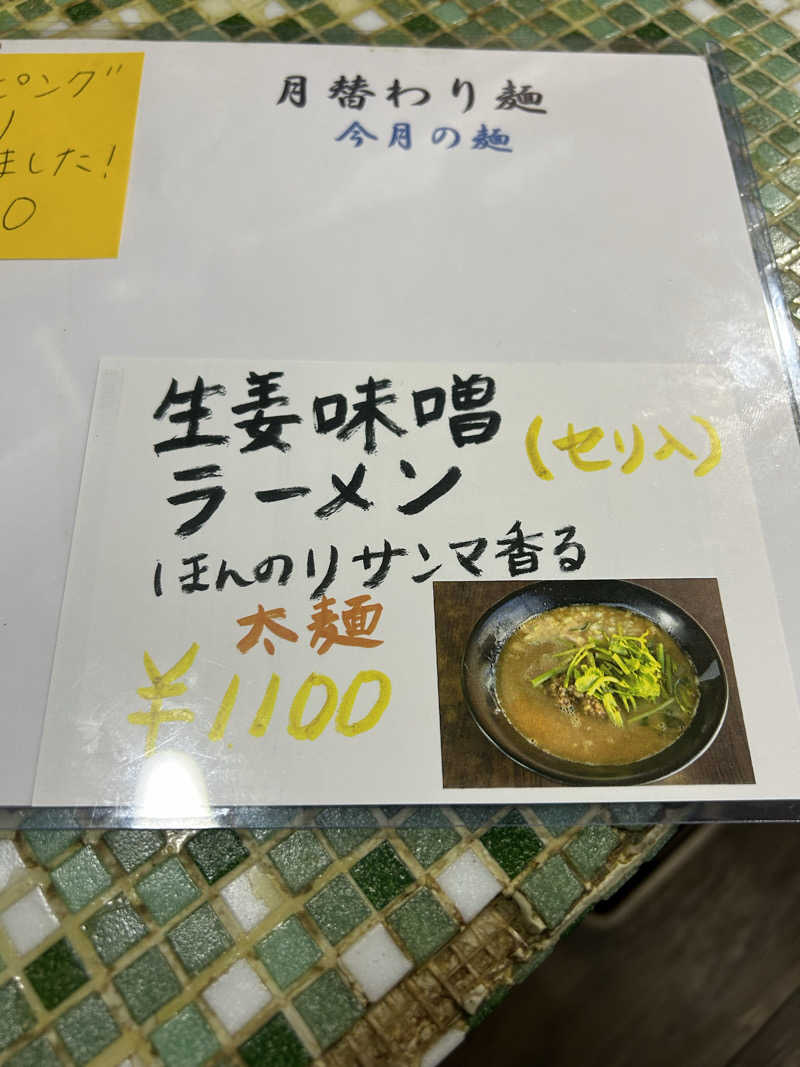 ピング
り
ました！
0
月替わり麺
今月の麺
生姜味噌
ラーメン
(セリ入)
ほんのりサンマ香る
太麺
¥1.100